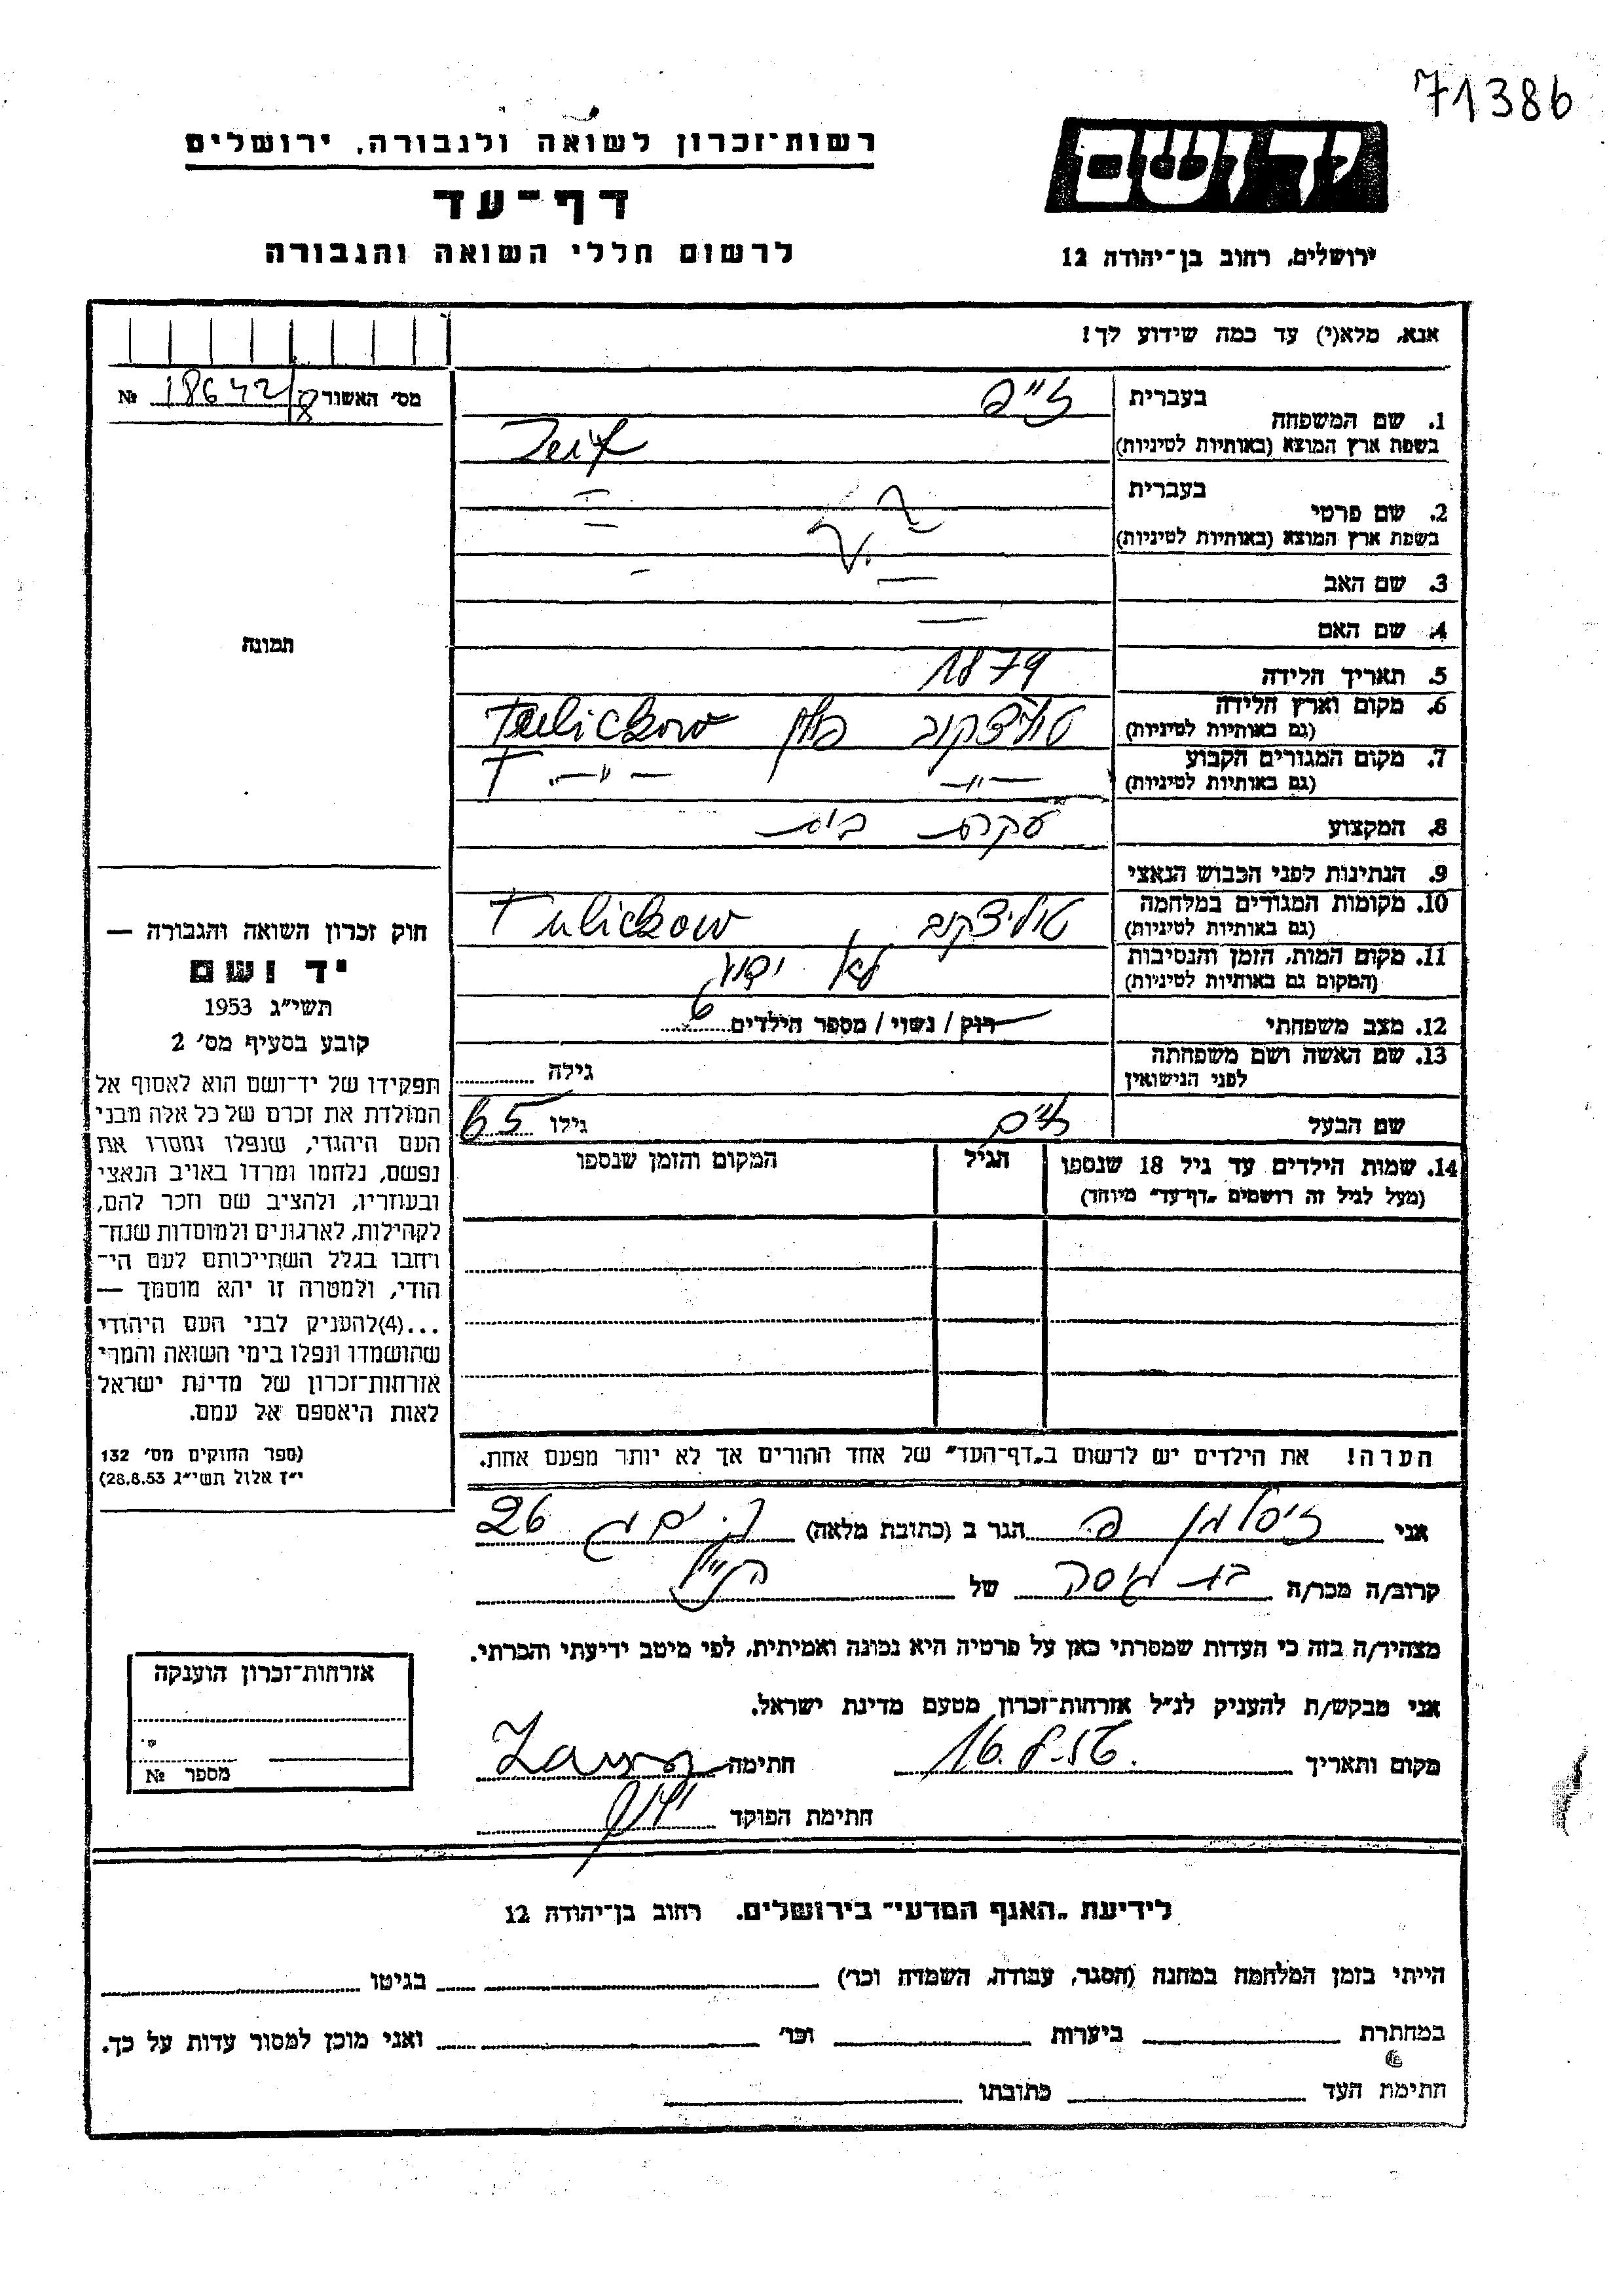 71386
יד ושם
רשות־זכרון לשואה ולגבורה, ירושלים
דף־עד
לרשום חללי השואה והגבורה
ירושלים, רחוב בן־יהודה 12
אנא, מלא(י) עד כמה שידוע לך!
מס׳ האשור 18642/8 №
תמונה
1. שם המשפחה
בעברית זייפ
בשפת ארץ המוצא (באותיות לטיניות) Zeif
2. שם פרטי
בעברית
בשפת ארץ המוצא (באותיות לטיניות)
3. שם האב —
4. שם האם —
5. תאריך הלידה 1879
6. מקום וארץ הלידה טוליצקוב פולין Tulickow
(גם באותיות לטיניות)
7. מקום המגורים הקבוע —״— —״— T
(גם באותיות לטיניות)
8. המקצוע עקרת בית
9. הנתינות לפני הכבוש הנאצי
10. מקומות המגורים במלחמה טוליצקוב Tulickow
(גם באותיות לטיניות)
11. מקום המות, הזמן והנסיבות לא ידוע
(המקום גם באותיות לטיניות)
12. מצב משפחתי רוק / נשוי / מספר הילדים 6
13. שם האשה ושם משפחתה
לפני הנישואין
גילה
שם הבעל גילו 65
14. שמות הילדים עד גיל 18 שנספו
(מעל לגיל זה רושמים „דף־עד״ מיוחד)
הגיל
המקום והזמן שנספו
הערה! את הילדים יש לרשום ב„דף־העד״ של אחד ההורים אך לא יותר מפעם אחת.
חוק זכרון השואה והגבורה —
יד ושם
תשי״ג 1953
קובע בסעיף מס׳ 2
תפקידו של יד־ושם הוא לאסוף אל
המולדת את זכרם של כל אלה מבני
העם היהודי, שנפלו ומסרו את
נפשם, נלחמו ומרדו באויב הנאצי
ובעוזריו, ולהציב שם וזכר להם,
לקהילות, לארגונים ולמוסדות שנח־
רחבו בגלל השתייכותם לעם הי־
הודי, ולמטרה זו יהא מוסמך —
...(4)להעניק לבני העם היהודי
שהושמדו ונפלו בימי השואה והמרי
אזרחות־זכרון של מדינת ישראל
לאות היאספם אל עמם.
(ספר החוקים מס׳ 132
י״ז אלול תשי״ג 28.8.53)
אני זיסלמן פ. הגר ב (כתובת מלאה) 26
קרוב/ה מכר/ה של הנ״ל
מצהיר/ה בזה כי העדות שמסרתי כאן על פרטיה היא נכונה ואמיתית, לפי מיטב ידיעתי והכרתי.
אני מבקש/ת להעניק לנ״ל אזרחות־זכרון מטעם מדינת ישראל.
מקום ותאריך 16.8.56 חתימה
חתימת הפוקד
אזרחות־זכרון הוענקה
מספר №
לידיעת „האגף המדעי״ בירושלים. רחוב בן־יהודה 12
הייתי בזמן המלחמה במחנה (הסגר, עבודה, השמדה וכר׳) בגיטו
במחתרת ביערות וכר׳ ואני מוכן למסור עדות על כך.
חתימת העד כתובתו